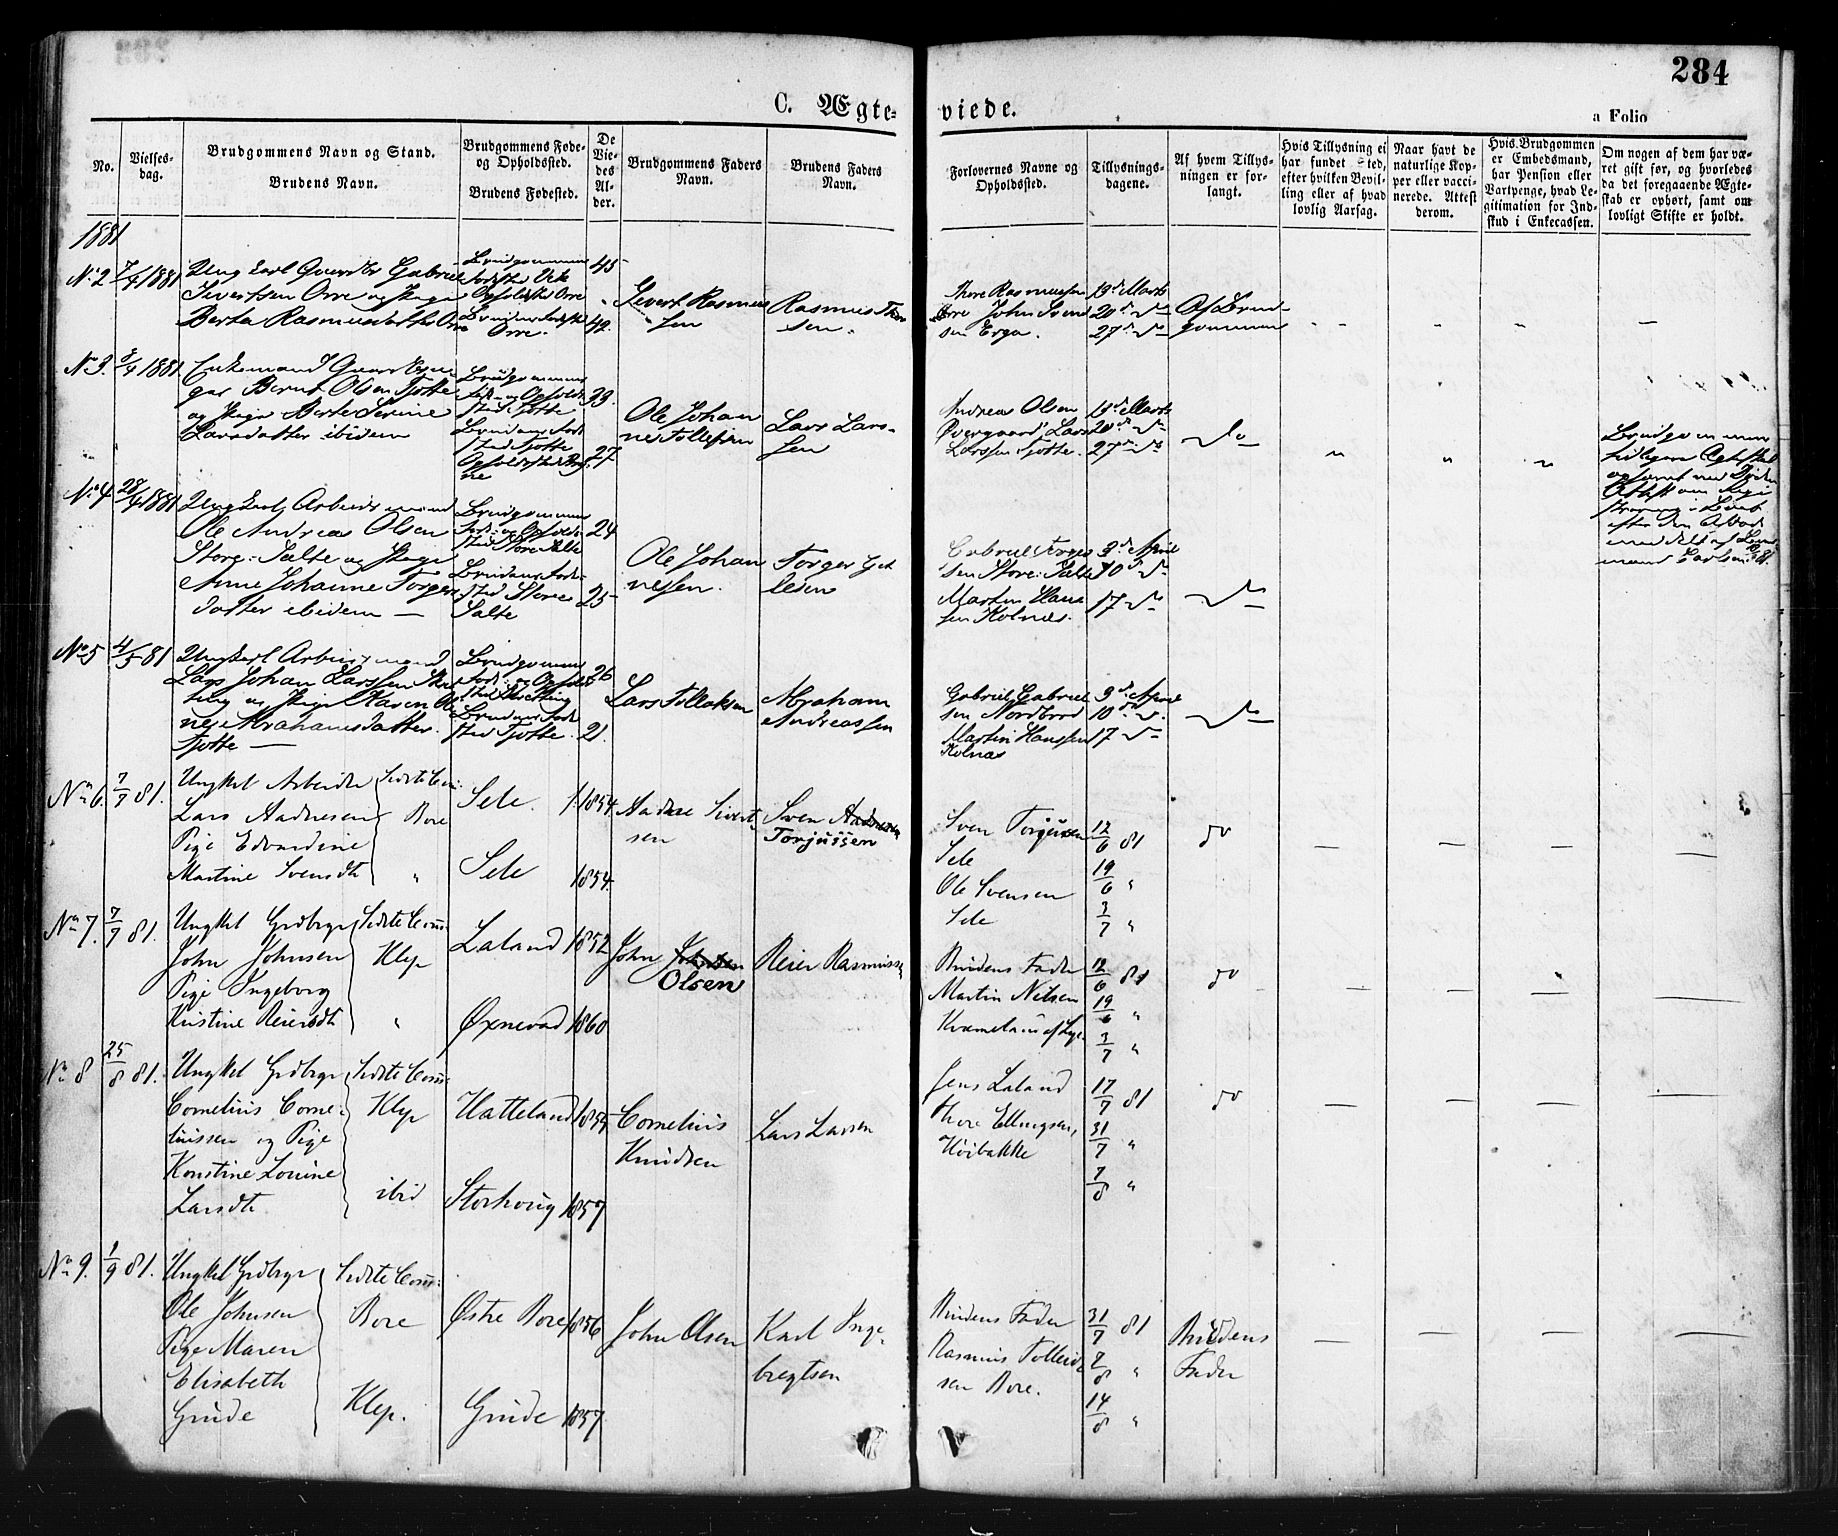 284
C. Ægte-
viede.
a Folio
No.
Vielses-
dag.
Brudgommens Navn og Stand.
Brudens Navn.
Brudgommens Føde-
og Opholdssted.
Brudens Fødested.
De
Vie-
des
Al-
der.
Brudgommens Faders
Navn.
Brudens Faders
Navn.
Forlovernes Navne og
Opholdssted.
Tillysnings-
dagene.
Af hvem Tillys-
ningen er for-
langt.
Hvis Tillysning ei
har fundet Sted,
efter hvilken Bevil-
ling eller af hvad
lovlig Aarsag.
Naar havt de
naturlige Kop-
per eller vacci-
nerede. Attest
derom.
Hvis Brudgommen
er Embedsmand,
har Pension eller
Vartpenge, hvad Le-
gitimation for Ind-
skud i Enkecassen.
Om nogen af dem har væ-
ret gift før, og hvorledes
da det foregaaende Ægte-
skab er ophørt, samt om
lovligt Skifte er holdt.
1881
No 2
7/4 1881
Ungkarl Gaardbr Gabriel
Sivertsen Orre og Pige
Berta Rasmusdatter Orre
Brudgommens
Orre
Brudens Fødested
Orre.
45
42.
Sivert Rasmus
sen
Rasmus Thor
sen.
Thore Rasmussen
Orre John Svend
sen Erga.
13de Marts
20de Do
27de Do
Af Brud-
gommen
No 3.
3/4 1881.
Enkemand Gaardbru-
ger Bernt Olsen Tjøtte
og Pige Berte Serine
Larsdatter ibidem
Brudgommens
Føde- og Opholds-
sted Tjøtte
Brudens Føde-
sted Tjøtte
Opholdssted
33.
27.
Ole Johan
nes Tollefsen
Lars Lars-
sen
Andreas Olsen
Øvergaard Lars
Larssen Tjøtte.
13de Marts
20de Do
27de Do
Do
Brudgommens
tidligere Ægteskab
ophævet ved Døden
Attest om Skifte
No 4
28/4 1881
Ungkarl Arbeidsmand
Ole Andreas Olsen
Store-Salte og Pige
Anne Johanne Torger
datter ibidem
Brudgommens
Føde- og Opholds-
sted Store Salte
Brudens Føde-
sted Store
Salte
24
25
Ole Johan
nessen.
Torger Gab
Gabriel Torger
sen Store-Salte
Martin Hans
sen Kolnæs.
3de April
10de Do
17 Do
Do
No 5
4/5 81
Ungkarl Arbeidsmand
Lars Johan Larssen Skre
ting og Pige Karen
Abrahamsdatter
Tjøtte
Brudgommens
Føde- og Opholds
sted Skretting
Brudens Føde
sted Tjøtte.
26
21.
Lars Tollaksen
Abraham
Andreassen
Gabriel Gabriel
sen Nordbraad
Martin Hanssen
Kolnæs
3de April
10de Do
17 Do
Do
No 6.
7/7 81.
Ungkel Arbeider
Lars Aadnesen
Pige Edvardine
Martine Svensdtr
Sidste Com:
Bore
"
Sele.
Sele
1854.
1854.
Aadne Sivert
sen
Sven Aadnesen
Torjussen
Sven Torjusen
Sele
Ole Svensen
Sele
12/6 81
19/6 "
3/7 "
do
No 7.
7/7 81.
Ungkel Grdbrgr
John Johnsen
Pige Ingeborg
Kristine Reiersdtr
Sidste Com:
Klep
"
Laland
Øxnevad
1852
1860
John Johnsen
Olsen
Reier Rasmussen
Brudens Fader
Martin Nilsen
Kvæmeland af Lye
12/6 81
19/6 "
3/7 "
do
No 8
25/8 81.
Ungkel Grdbrgr
Cornelius Corne-
liussen og Pige
Konstine Lovine
Larsdtr
Sidste Com:
Klep
ibid
Hatteland
Storhoug
1855
1857
Cornelius
Knudsen
Lars Larsen
Jens Laland
Thore Ellingsen,
Høibakke
17/7 81
31/7 "
7/8 "
do
No 9.
1/9 81.
Ungkel Grdbrgr
Ole Johnsen
Pige Maren
Elisabeth
Grude
Sidste Com:
Bore
Klep.
Østre Bore
Grude
1856
1857
John Olsen
Karl Inge-
bregtsen
Brudens Fader
Rasmus Tolleid
sen Bore.
31/7 81
7/8 "
14/8 "
Brudens
Fader